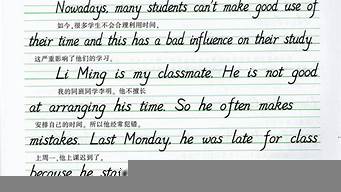 Nowadays, many students can't make good use of
如今，很多学生不会合理利用时间，
their time and this has a bad influence on their study.
这严重影响了他们的学习。
Li Ming is my classmate. He is not good
我的同班同学李明，他不擅长
at arranging his time. So he often makes
安排自己的时间，所以他经常犯错。
mistakes. Last Monday, he was late for class
上周一，他上课迟到了，
because he